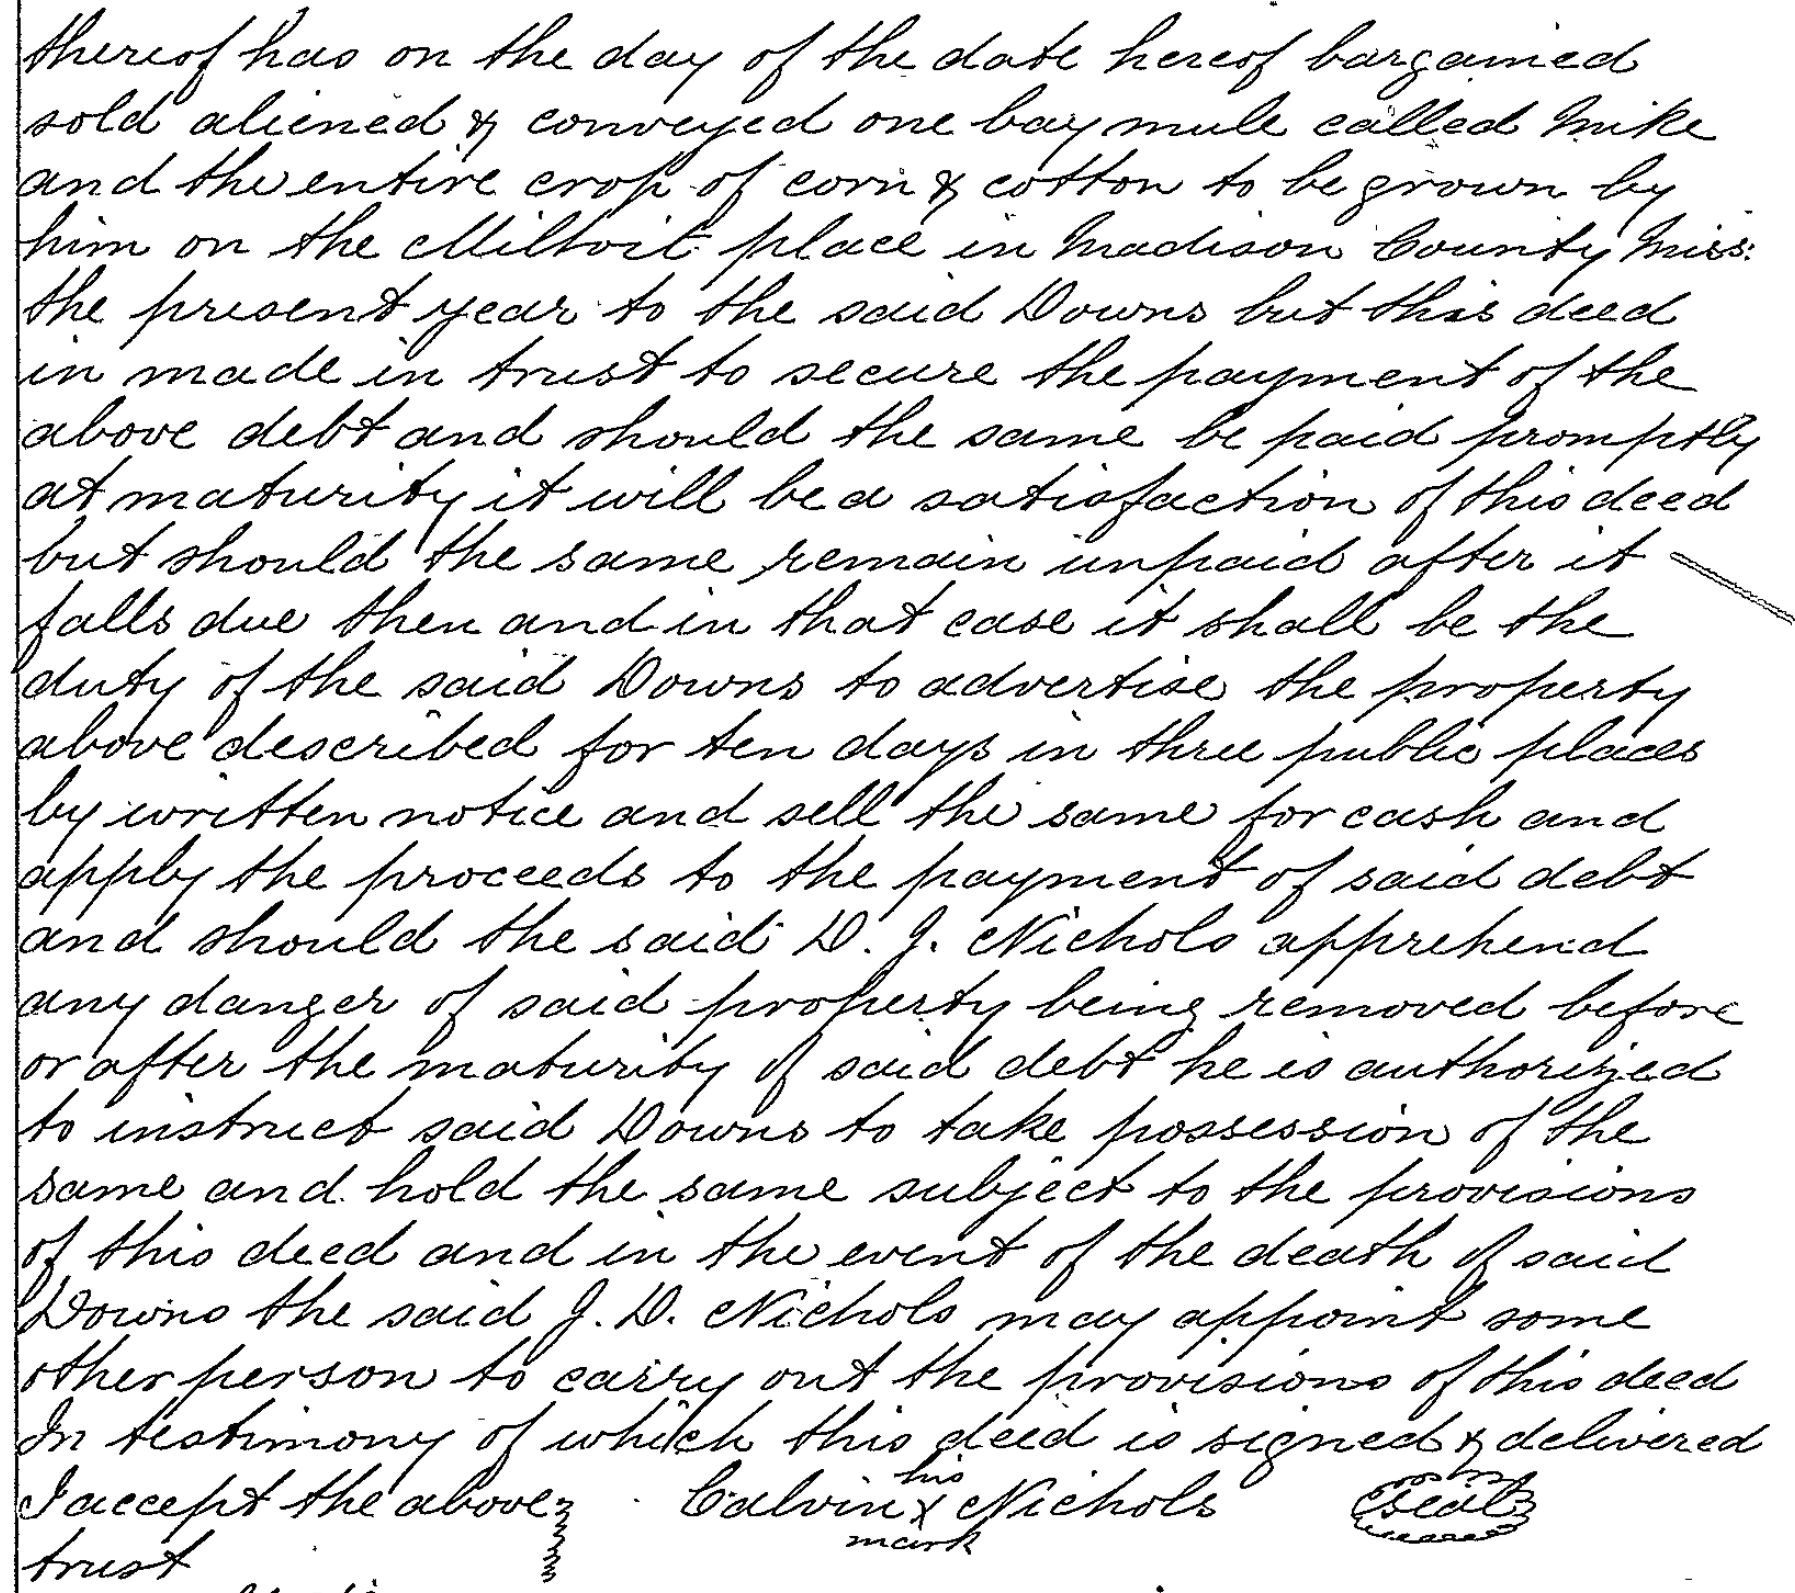 thereof has on the day of the date hereof bargained
sold aliened & conveyed one bay mule called Mike
and the entire crop of corn & cotton to be grown by
him on the place in Madison County Miss:
the present year to the said Downs but this deed
in made in trust to secure the payment of the
above debt and should the same be paid promptly
at maturity it will be a satisfaction of this deed
but should the same remain unpaid after it
falls due then and in that case it shall be the
duty of the said Downs to advertise the property
above described for ten days in three public places
by written notice and sell the same for cash and
apply the proceeds to the payment of said debt
and should the said D. J. Nichols apprehend
any danger of said property being removed before
or after the maturity of said debt he is authorized
to instruct said Downs to take possession of the
same and hold the same subject to the provisions
of this deed and in the event of the death of said
Downs the said J. D. Nichols may appoint some
other person to carry out the provisions of this deed
In testimony of which this deed is signed & delivered
his
I accept the above Calvin X Nichols Seal
mark
trust